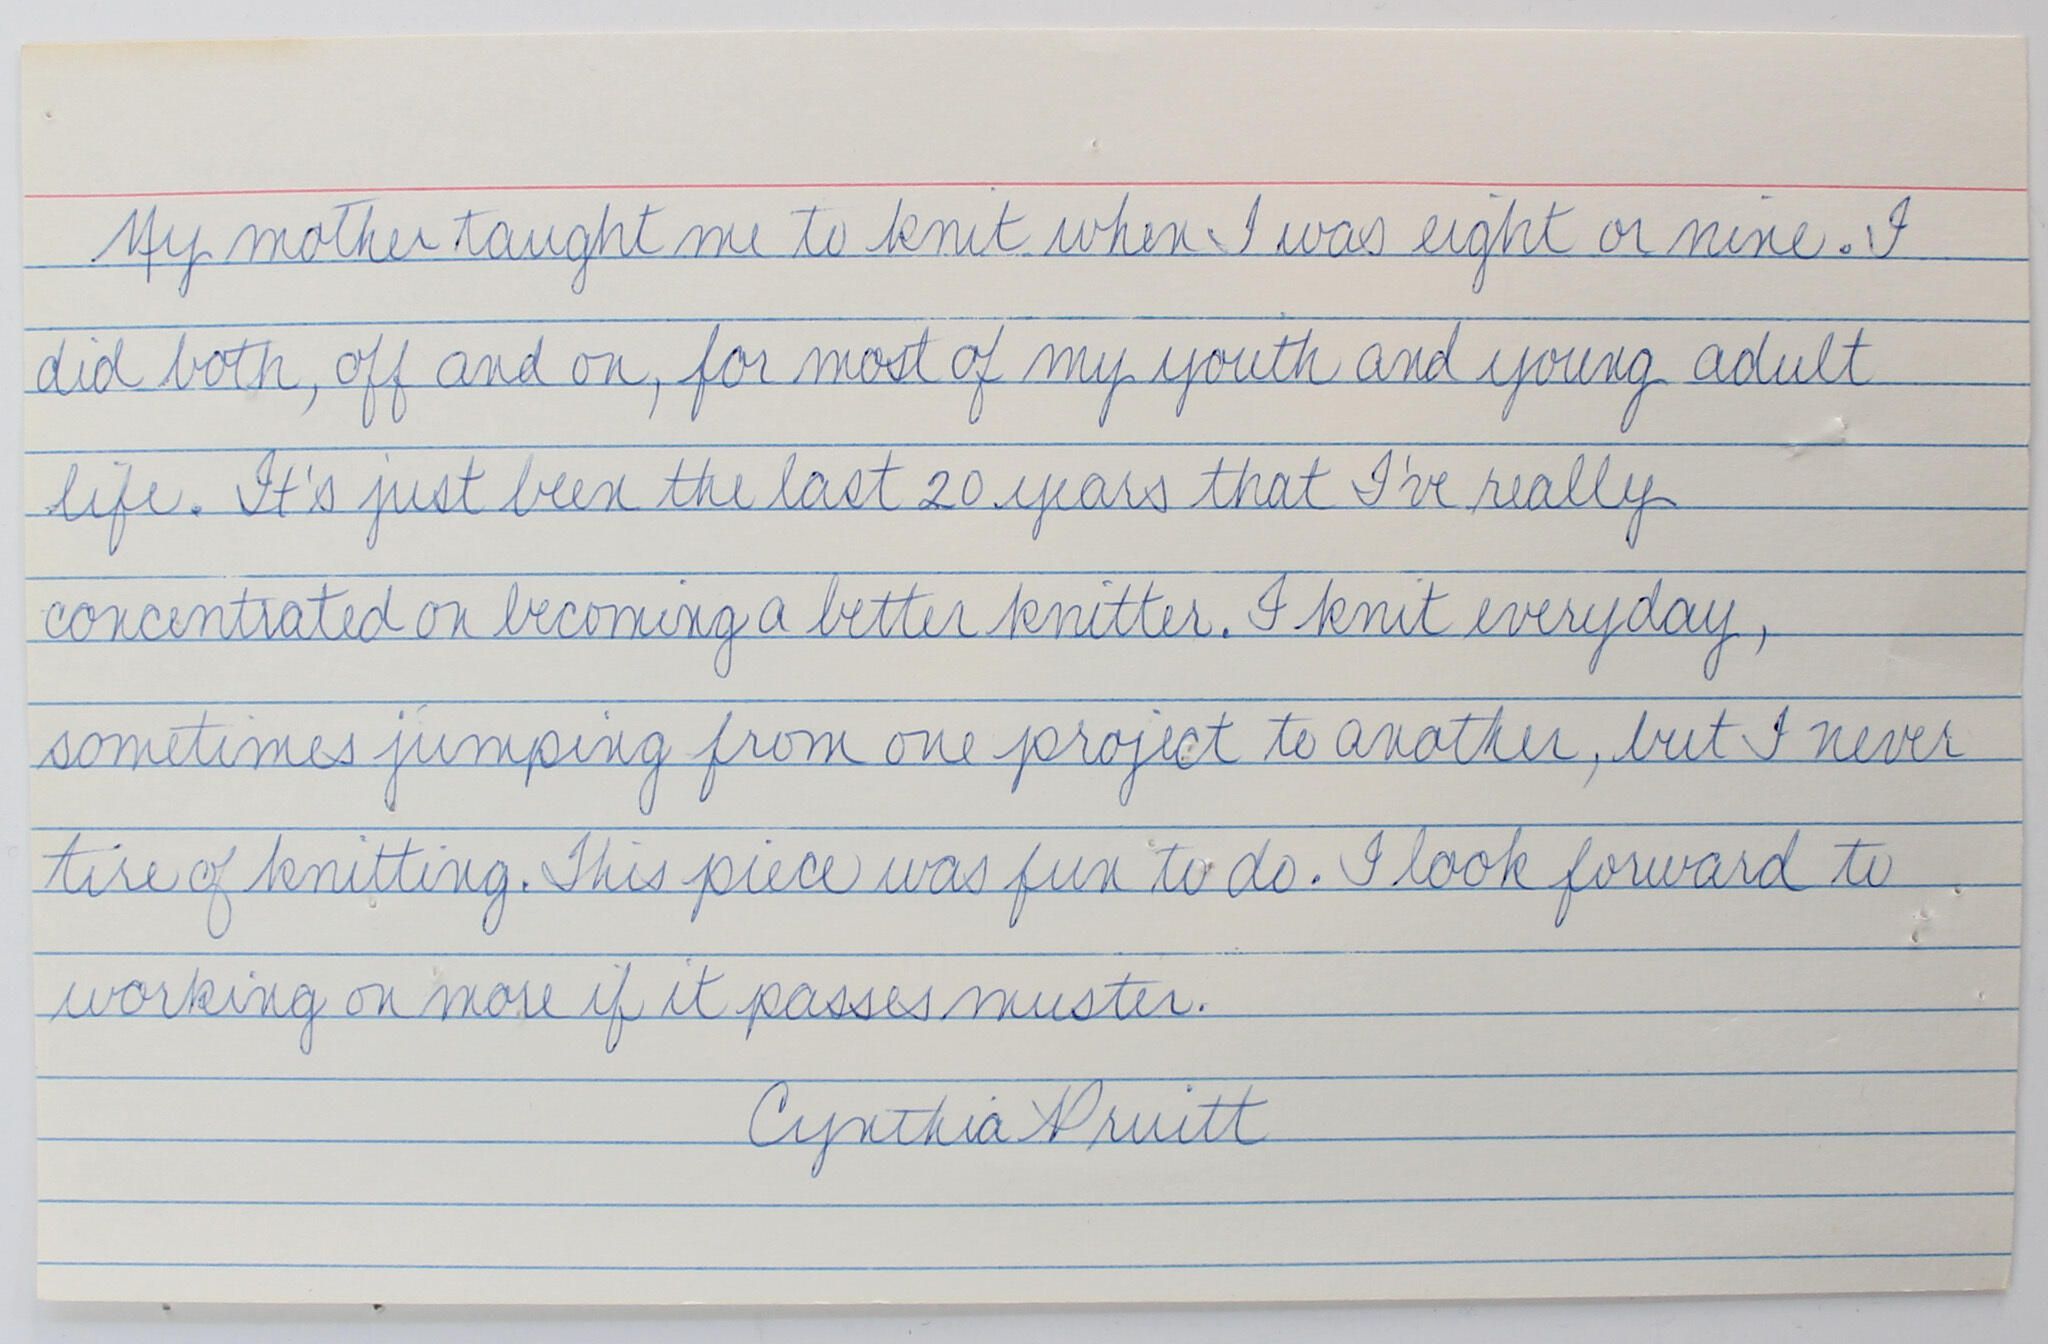 My mother taught me to knit when I was eight or nine. I
did both, off and on, for most of my youth and young adult
life. It's just been the last 20 years that I've really
concentrated on becoming a better knitter. I knit everyday,
sometimes jumping from one project to another, but I never
tire of knitting. This piece was fun to do. I look forward to
working on more if it passes muster.
Cynthia Pruitt